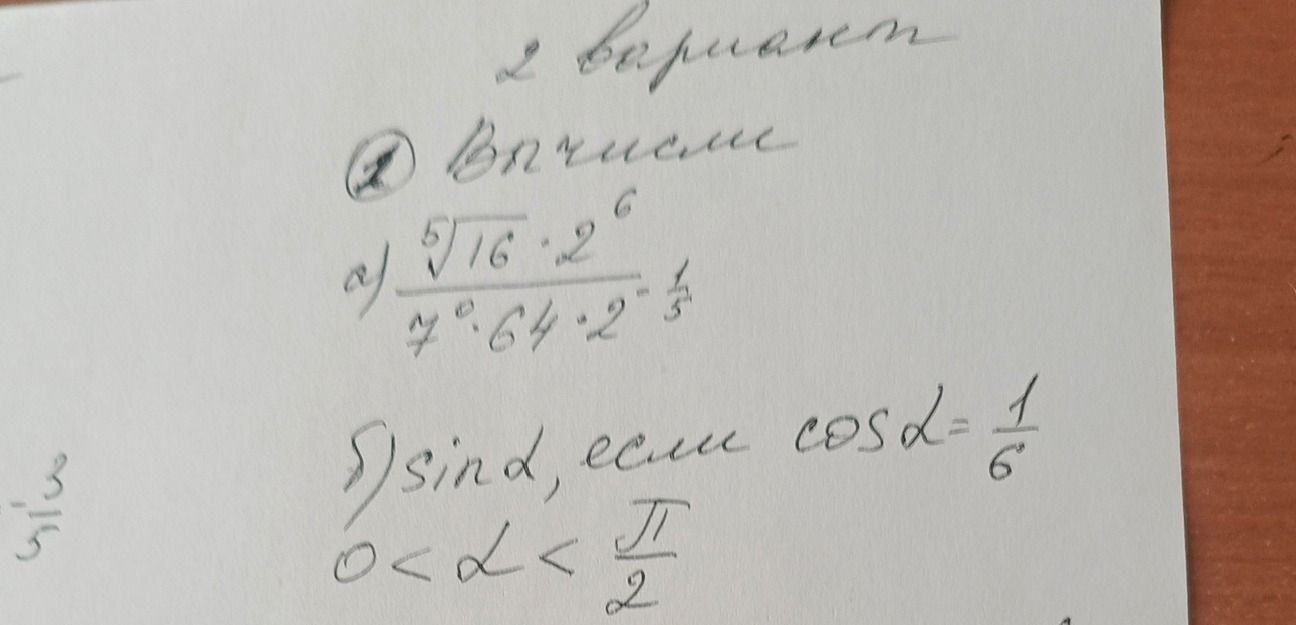 2 вариант
① Вычисли
а) (⁵√16 · 2⁶) / (7⁰ · 64 · 2^(-1/5))
б) sin α, если cos α = 1/6
0 < α < π/2
-3/5